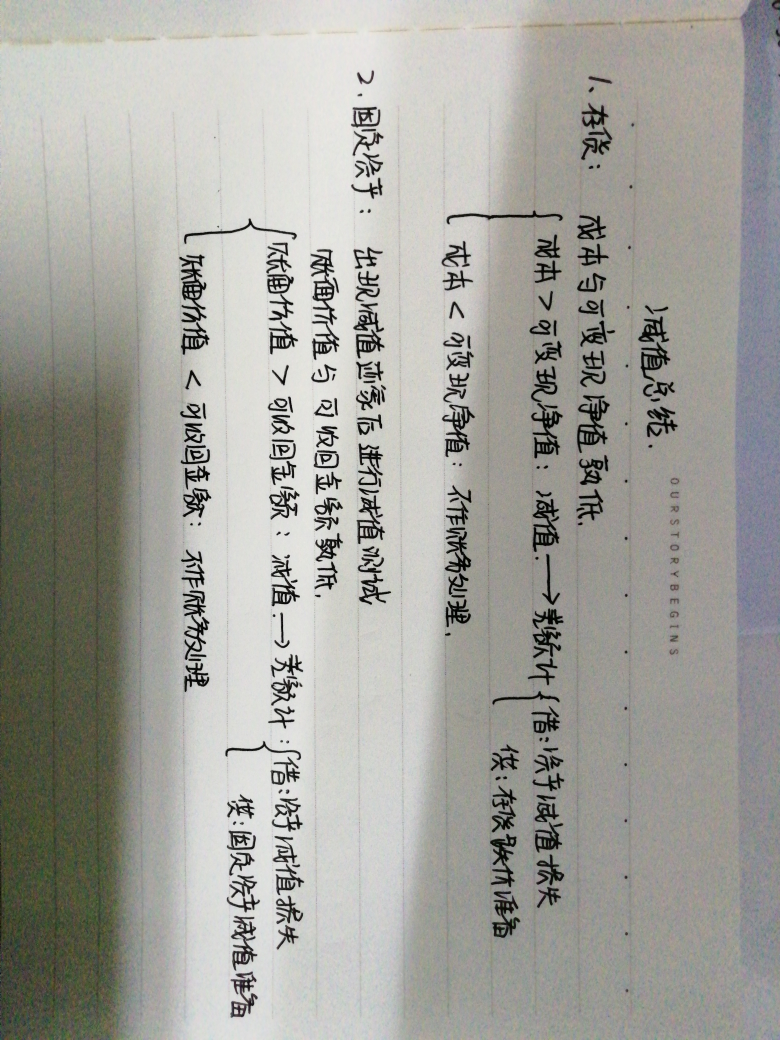 OURSTORYBEGINS
减值总结.
1、存货： 成本与可变现净值孰低.
成本 > 可变现净值：减值.→差额计 借：资产减值损失
贷：存货跌价准备
成本 < 可变现净值： 不作账务处理.
2、固定资产： 出现减值迹象后进行减值测试
账面价值与可收回金额孰低.
账面价值 > 可收回金额：减值.→差额计： 借：资产减值损失
贷：固定资产减值准备
账面价值 < 可收回金额： 不作账务处理